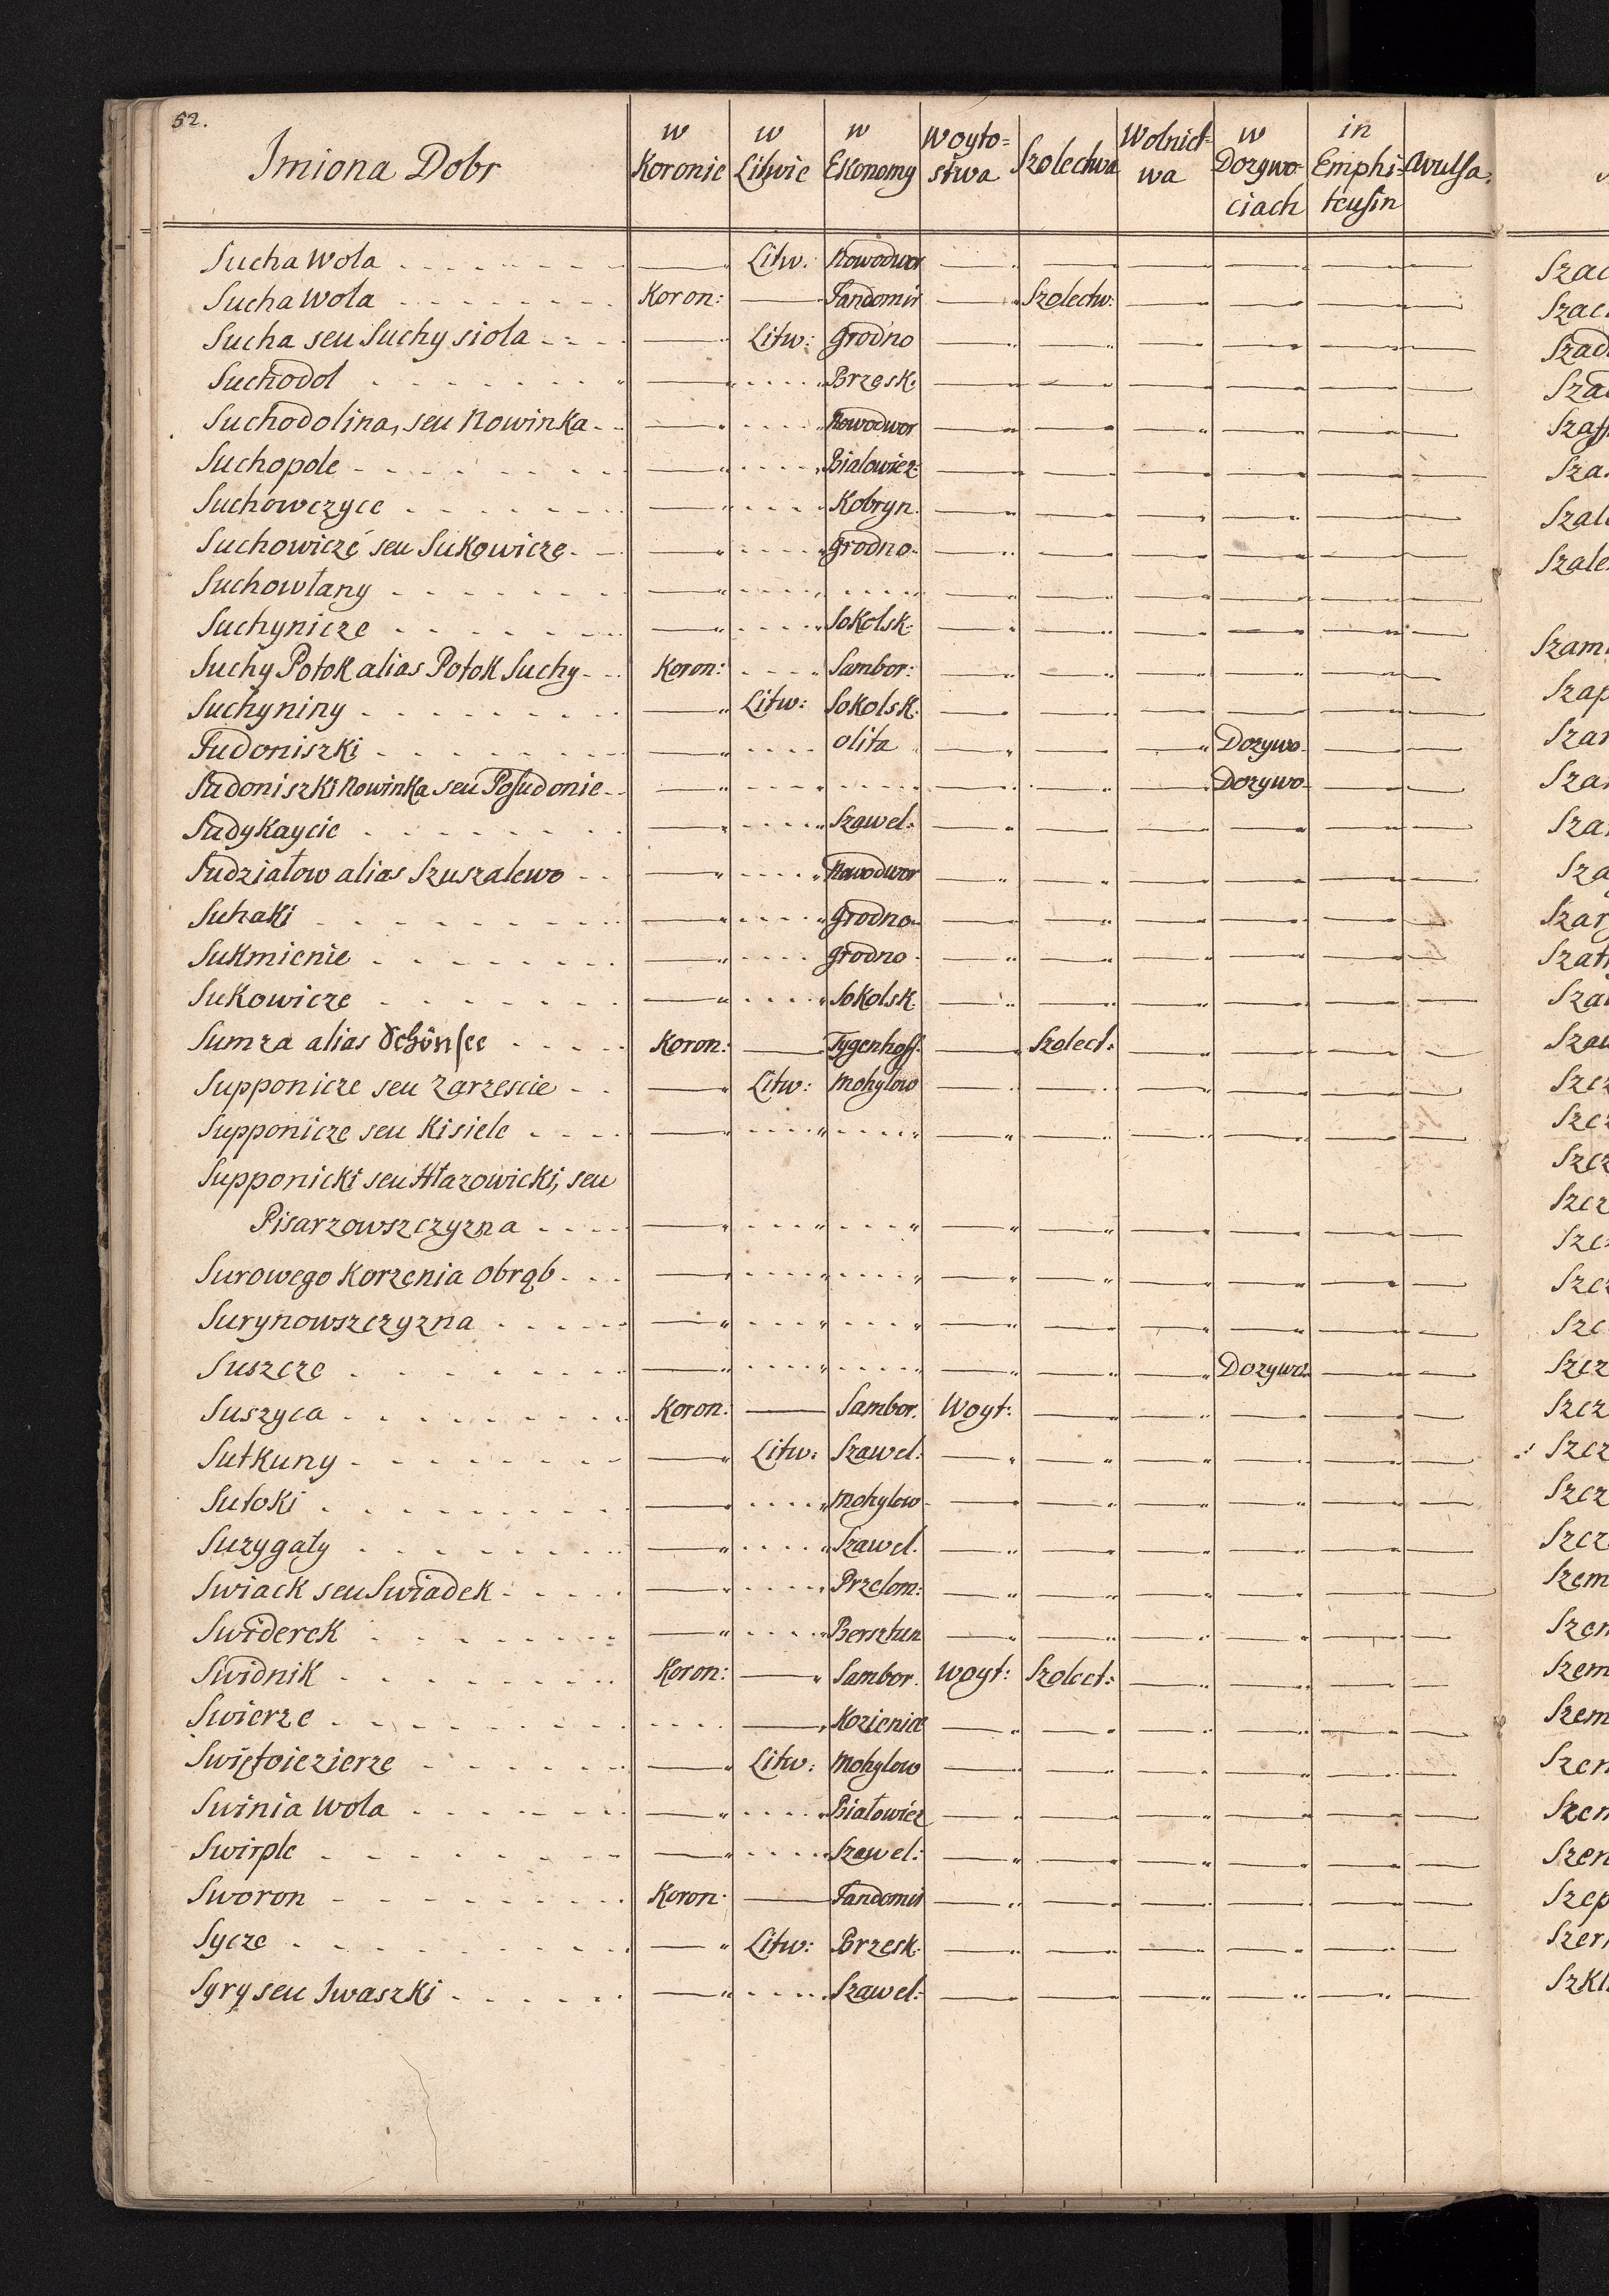 52.
Imiona Dobr | w Koronie | w Litwie | w Ekonomy | Woyto=stwa | Szolectwa | Wolnict=wa | w Dozywo=ciach | in Emphi=teusin | Avulsa.
Sucha Wola | Litw: | Nowodwor
Sucha Wola | Koron: | Sandomir | Szolectw:
Sucha seu Suchy siola | Litw: | Grodno
Suchodol | Brzesk:
Suchodolina, seu Nowinka | Nowodwor
Suchopole | Bialowiez:
Suchowczyce | Kobryn.
Suchowicze seu Sukowicze | Grodno.
Suchowlany
Suchynicze | Sokolsk:
Suchy Potok alias Potok Suchy | Koron: | Sambor:
Suchyniny | Litw: | Sokolsk.
Sudoniszki | olita | Dozywo
Sudoniszki Nowinka seu Posudonie | Dozywo
Sudykaycie | Szawel:
Sudziałow alias Szuszalewo | Nowodwor
Suhaki | Grodno
Sukmienie | Grodno
Sukowicze | Sokolsk.
Sumza alias Schönsee | Koron: | Tygenhoff. | Szolect:
Supponicze seu Zarzescie | Litw: | Mohylow
Supponicze seu Kisiele
Supponicki seu Hłazowicki, seu
Pisarzowszczyzna
Surowego Korzenia Obrąb
Surynowszczyzna
Suszcze | Dozywo
Suszyca | Koron: | Sambor. | Woyt:
Sutkuny | Litw: | Szawel:
Sutoki | Mohylow
Suzygaty | Szawel.
Swiack seu Swiadek | Przelom:
Swiderek | Bersztun
Swidnik | Koron: | Sambor. | Woyt: | Szolect:
Swierze | Kozienic
Swiętoiezierze | Litw: | Mohylow
Swinia Wola | Białowiez
Swirple | Szawel:
Sworon | Koron: | Sandomir
Sycze | Litw: | Brzesk.
Syry seu Iwaszki | Szawel: